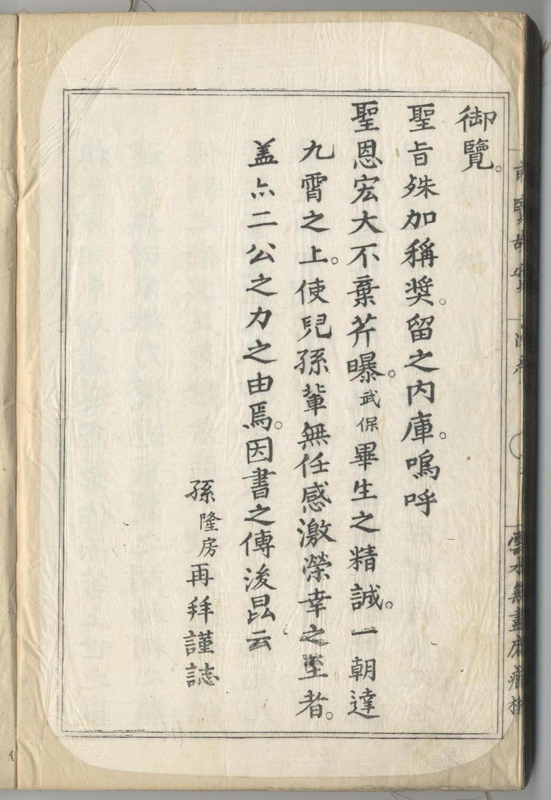 御覽。
聖旨殊加稱奨。留之内庫。嗚呼
聖恩宏大不棄芹曝。武保畢生之精誠。一朝達
九霄之上。使兒孫輩無任感激榮幸之至者。
盖亦二公之力之由焉。因書之傳後昆云
孫隆房再拜謹誌